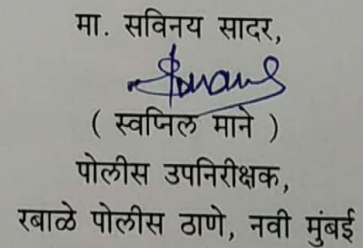 मा. सविनय सादर,
( स्वप्निल माने )
पोलीस उपनिरीक्षक,
रबाळे पोलीस ठाणे, नवी मुंबई